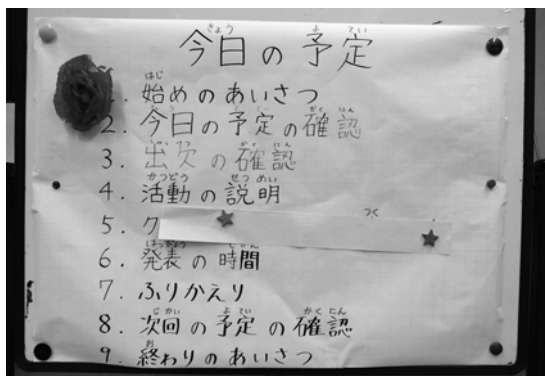 今日の予定
1. 始めのあいさつ
2. 今日の予定の確認
3. 出欠の確認
4. 活動の説明
5. ク
6. 発表の時間
7. ふりかえり
8. 次回の予定の確認
9. 終わりのあいさつ